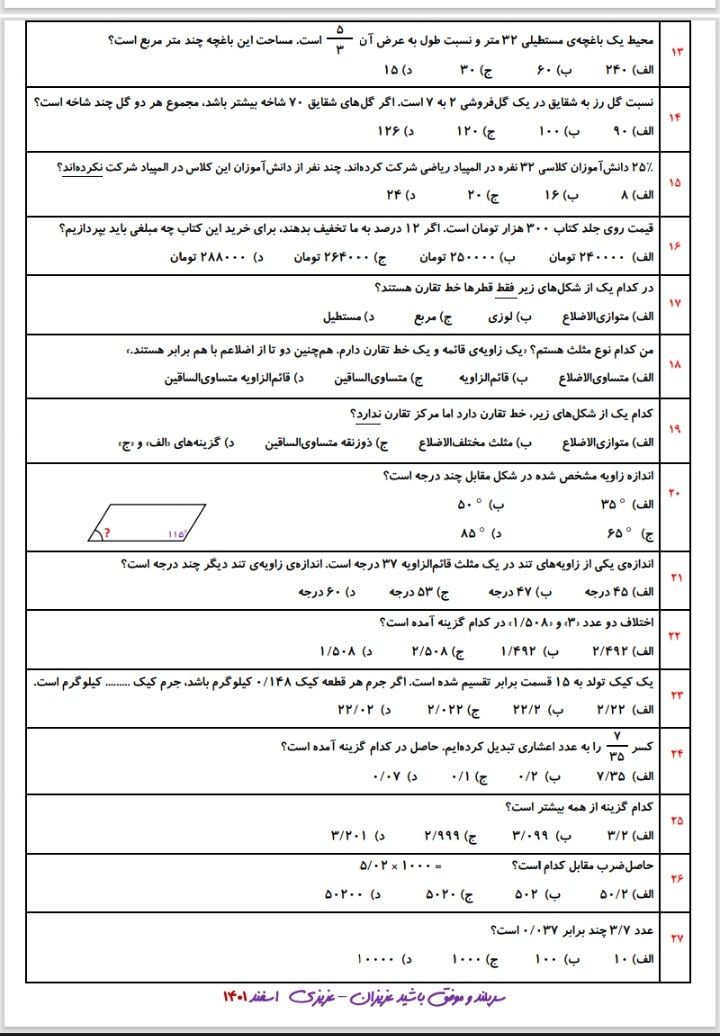 ۱۳
محیط یک باغچه‌ی مستطیلی ۳۲ متر و نسبت طول به عرض آن ۵/۳ است. مساحت این باغچه چند متر مربع است؟
الف) ۲۴۰ ب) ۶۰ ج) ۳۰ د) ۱۵
۱۴
نسبت گل رز به شقایق در یک گل‌فروشی ۲ به ۷ است. اگر گل‌های شقایق ۷۰ شاخه بیشتر باشد، مجموع هر دو گل چند شاخه است؟
الف) ۹۰ ب) ۱۰۰ ج) ۱۲۰ د) ۱۲۶
۱۵
۲۵٪ دانش‌آموزان کلاسی ۳۲ نفره در المپیاد ریاضی شرکت کرده‌اند. چند نفر از دانش‌آموزان این کلاس در المپیاد شرکت نکرده‌اند؟
الف) ۸ ب) ۱۶ ج) ۲۰ د) ۲۴
۱۶
قیمت روی جلد کتاب ۳۰۰ هزار تومان است. اگر ۱۲ درصد به ما تخفیف بدهند، برای خرید این کتاب چه مبلغی باید بپردازیم؟
الف) ۲۴۰۰۰۰ تومان ب) ۲۵۰۰۰۰ تومان ج) ۲۶۴۰۰۰ تومان د) ۲۸۸۰۰۰ تومان
۱۷
در کدام یک از شکل‌های زیر فقط قطرها خط تقارن هستند؟
الف) متوازی‌الاضلاع ب) لوزی ج) مربع د) مستطیل
۱۸
من کدام نوع مثلث هستم؟ «یک زاویه‌ی قائمه و یک خط تقارن دارم. هم‌چنین دو تا از اضلاعم با هم برابر هستند.»
الف) متساوی‌الاضلاع ب) قائم‌الزاویه ج) متساوی‌الساقین د) قائم‌الزاویه متساوی‌الساقین
۱۹
کدام یک از شکل‌های زیر، خط تقارن دارد اما مرکز تقارن ندارد؟
الف) متوازی‌الاضلاع ب) مثلث مختلف‌الاضلاع ج) ذوزنقه متساوی‌الساقین د) گزینه‌های «الف» و «ج»
۲۰
اندازه زاویه مشخص شده در شکل مقابل چند درجه است؟
الف) ۳۵° ب) ۵۰°
ج) ۶۵° د) ۸۵°
? ۱۱۵°
۲۱
اندازه‌ی یکی از زاویه‌های تند در یک مثلث قائم‌الزاویه ۳۷ درجه است. اندازه‌ی زاویه‌ی تند دیگر چند درجه است؟
الف) ۴۵ درجه ب) ۴۷ درجه ج) ۵۳ درجه د) ۶۰ درجه
۲۲
اختلاف دو عدد «۳» و «۱/۵۰۸» در کدام گزینه آمده است؟
الف) ۲/۴۹۲ ب) ۱/۴۹۲ ج) ۲/۵۰۸ د) ۱/۵۰۸
۲۳
یک کیک تولد به ۱۵ قسمت برابر تقسیم شده است. اگر جرم هر قطعه کیک ۰/۱۴۸ کیلوگرم باشد، جرم کیک ......... کیلوگرم است.
الف) ۲/۲۲ ب) ۲۲/۲ ج) ۲/۰۲۲ د) ۲۲/۰۲
۲۴
کسر ۷/۳۵ را به عدد اعشاری تبدیل کرده‌ایم. حاصل در کدام گزینه آمده است؟
الف) ۷/۳۵ ب) ۰/۲ ج) ۰/۱ د) ۰/۰۷
۲۵
کدام گزینه از همه بیشتر است؟
الف) ۳/۲ ب) ۳/۰۹۹ ج) ۲/۹۹۹ د) ۳/۲۰۱
۲۶
حاصل‌ضرب مقابل کدام است؟ ۵/۰۲ × ۱۰۰۰ =
الف) ۵۰/۲ ب) ۵۰۲ ج) ۵۰۲۰ د) ۵۰۲۰۰
۲۷
عدد ۳/۷ چند برابر ۰/۰۳۷ است؟
الف) ۱۰ ب) ۱۰۰ ج) ۱۰۰۰ د) ۱۰۰۰۰
سربلند و موفق باشید عزیزان – عزیزی اسفند ۱۴۰۱